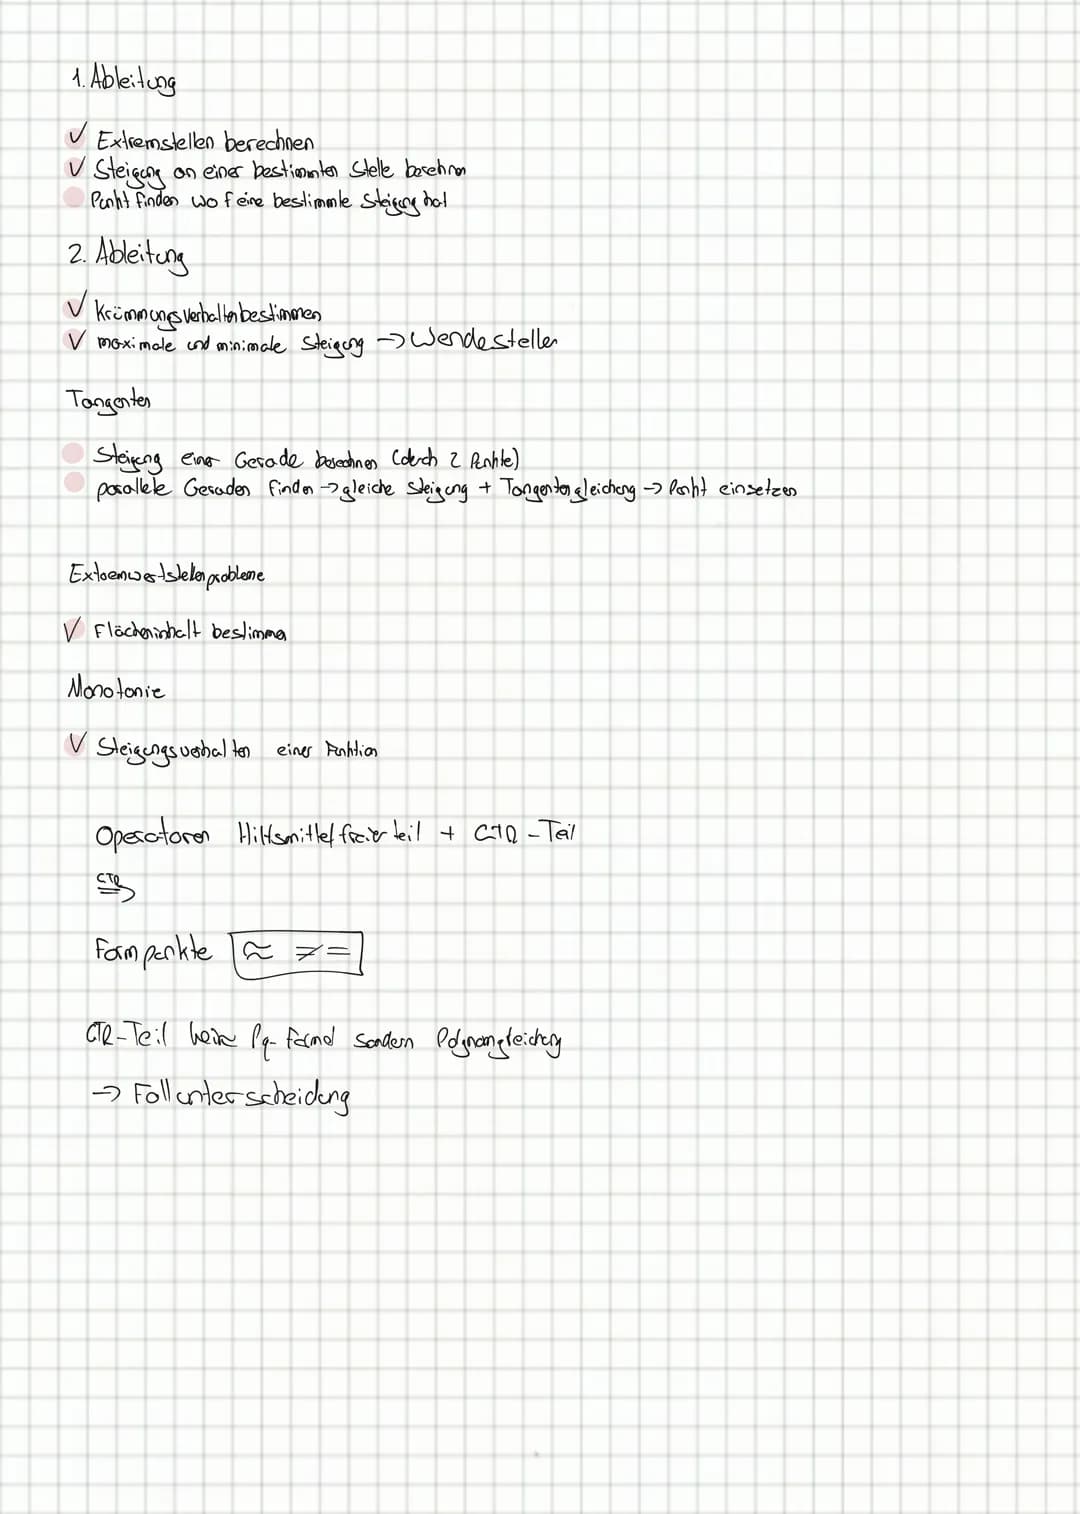 1. Ableitung
✓ Extremstellen berechnen
✓ Steigung an einer bestimmten Stelle berechnen
Punkt finden wo f eine bestimmte Steigung hat
2. Ableitung
✓ Krümmungsverhalten bestimmen
✓ maximale und minimale Steigung → Wendestellen
Tangenten
Steigung einer Gerade berechnen (durch 2 Punkte)
parallele Geraden finden → gleiche Steigung + Tangentengleichung → Punkt einsetzen
Extremwertstellenprobleme
✓ Flächeninhalt bestimmen
Monotonie
✓ Steigungsverhalten einer Funktion
Operatoren Hilfsmittelfreier teil + GTR - Teil
GTR
Formpunkte ≈ ≠ =
GTR-Teil keine Pq-Formel sondern Polynomgleichung
→ Fallunterscheidung